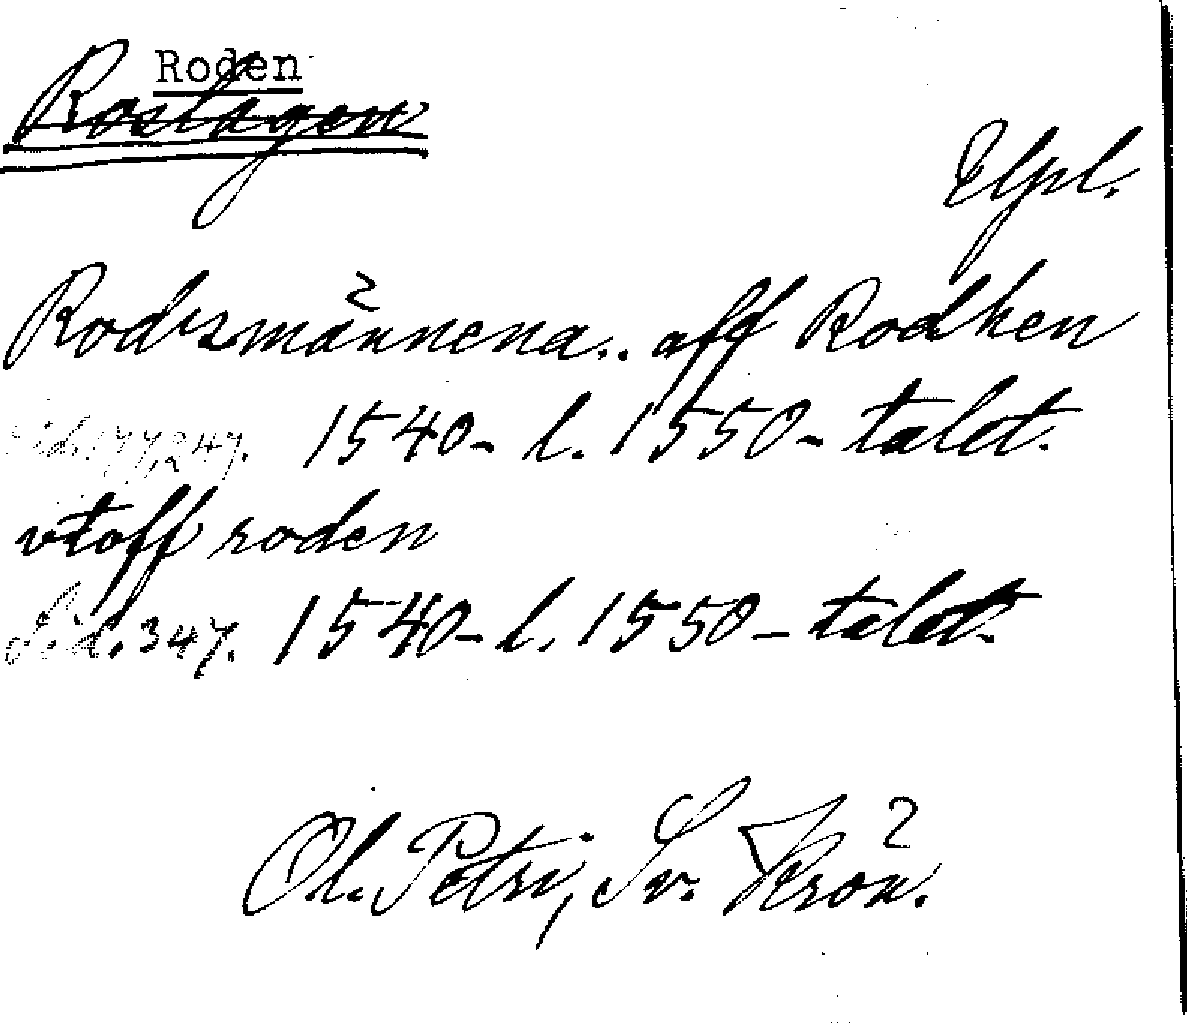 Roden
Roslagen
Upl.
Rodzmännena.. aff Rodhen
sid. 177, 247. 1540- l. 1550-talet.
vtoff roden
Sid. 347. 1540- l. 1550-talet.
Ol. Petri, Sv. Krön.